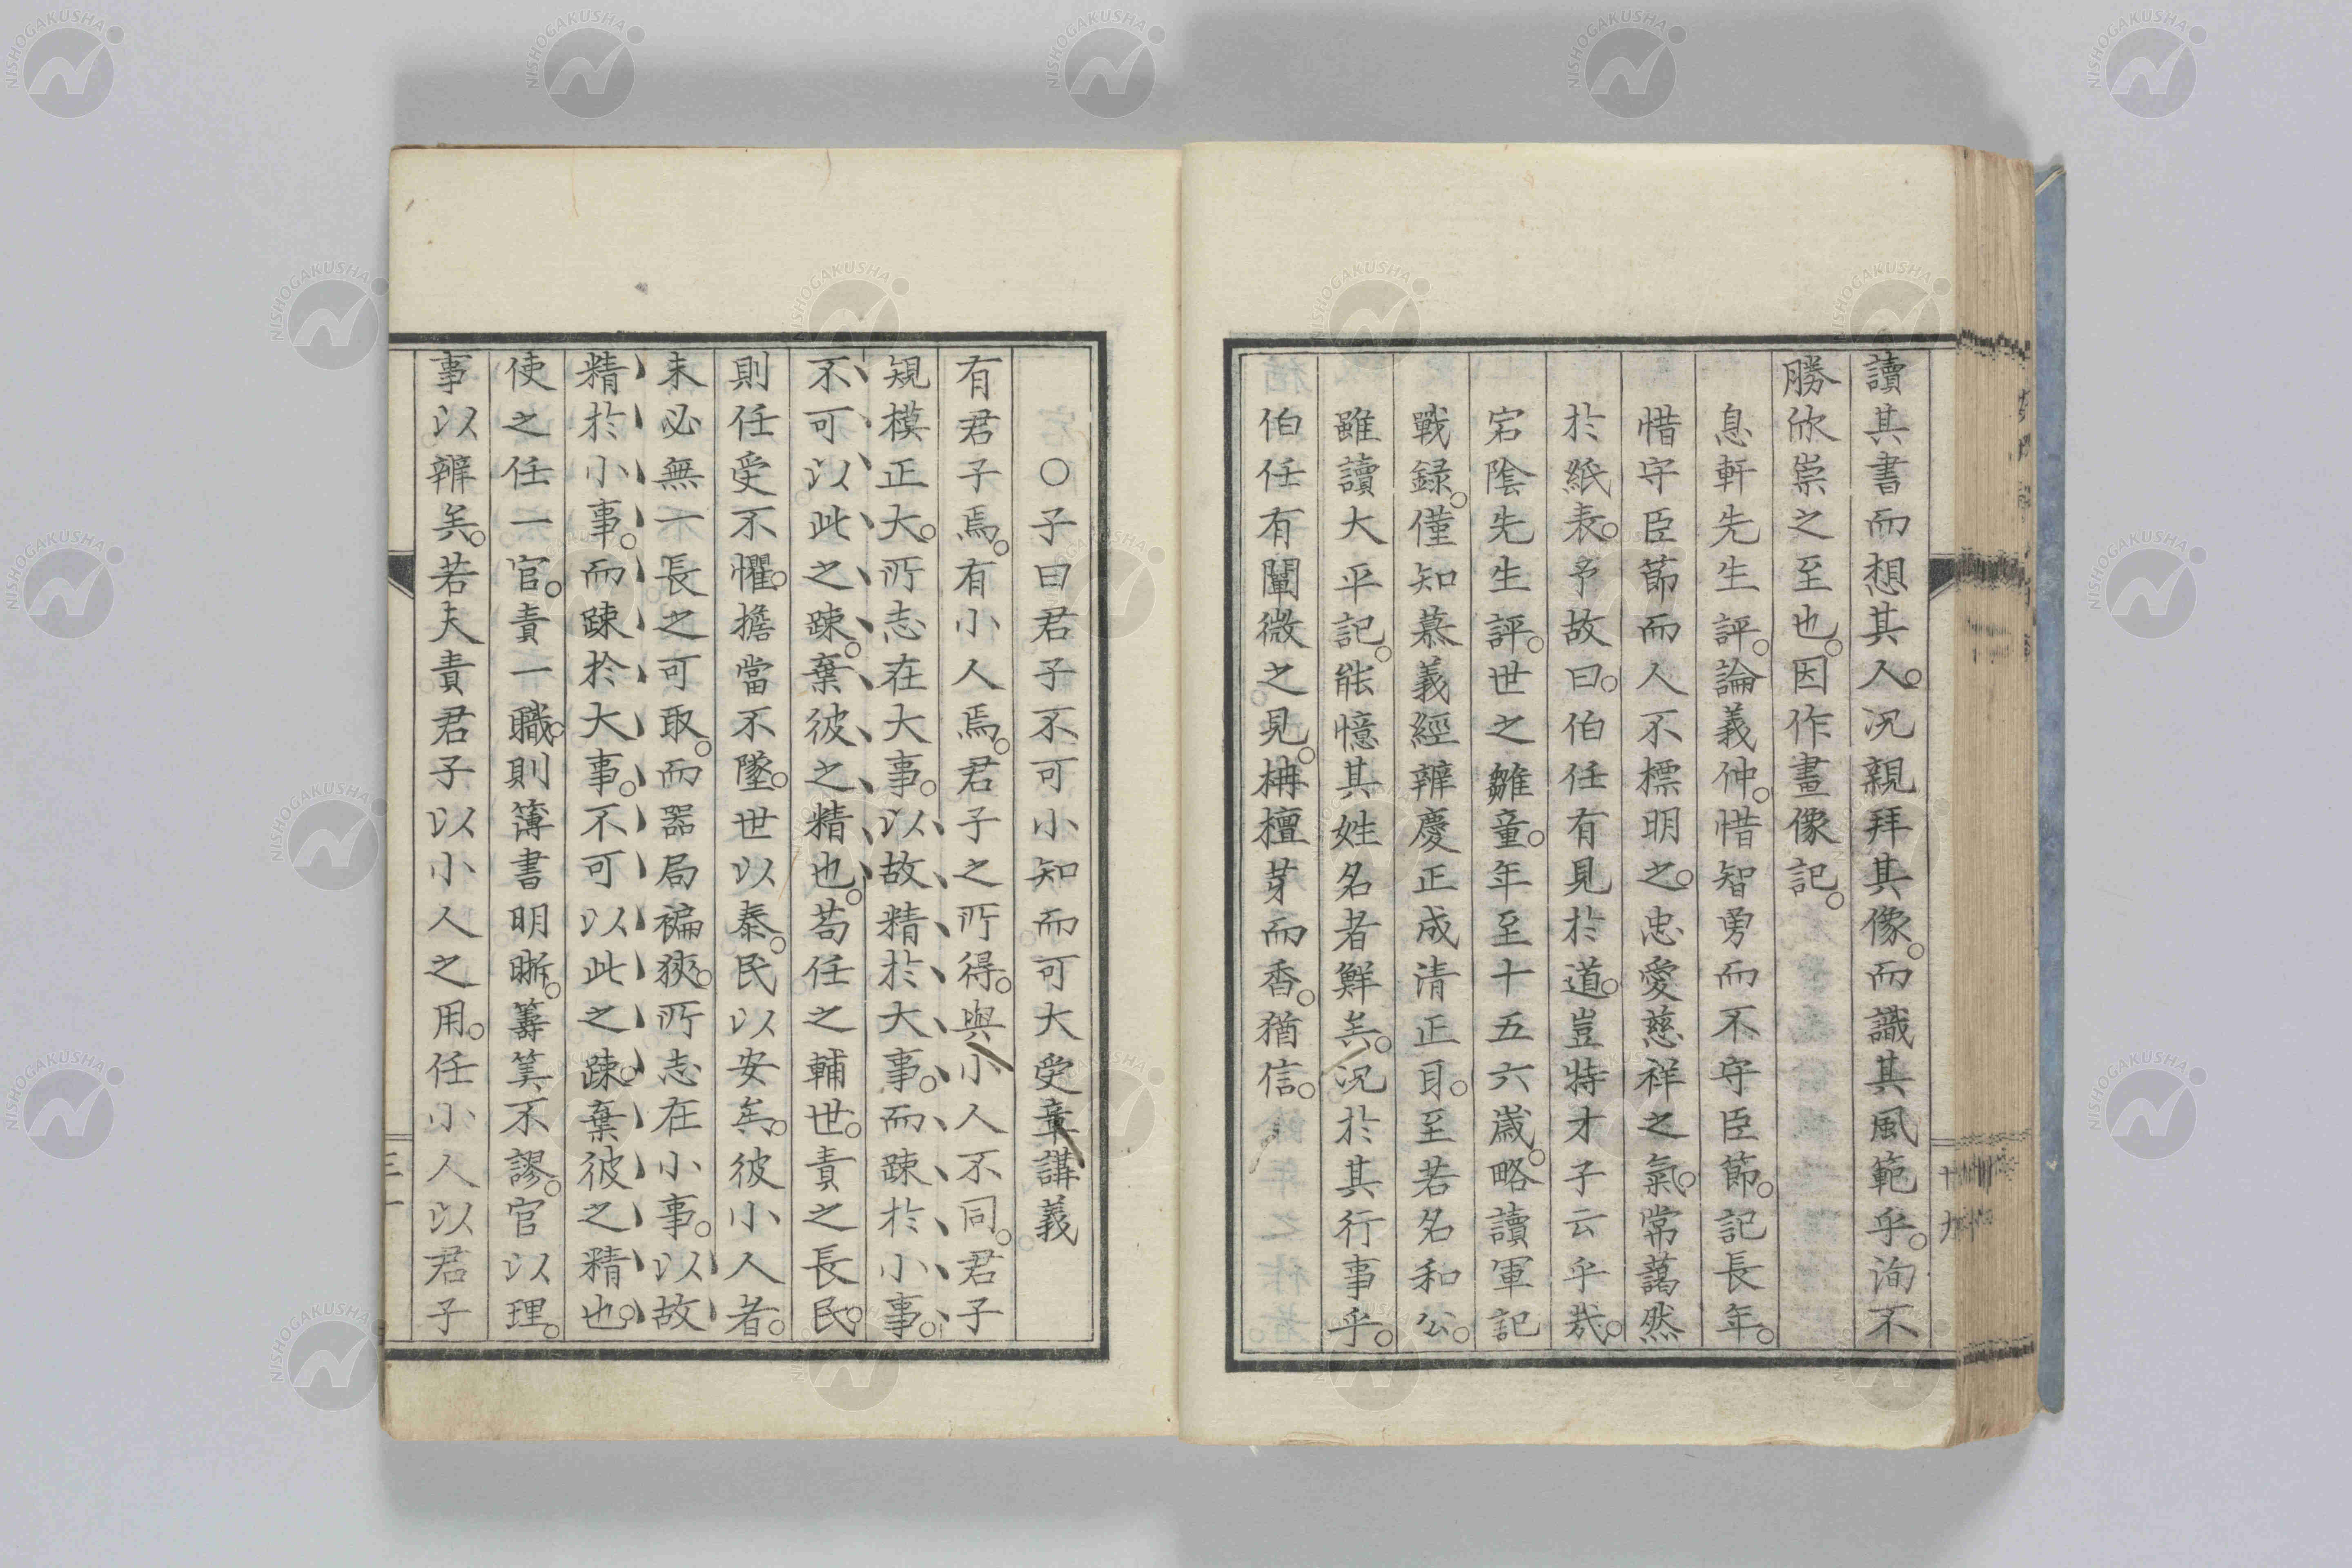 讀其書而想其人。況親拜其像。而識其風範乎。洵不
勝欣崇之至也。因作畫像記。
息軒先生評。論義仲。惜智勇而不守臣節。記長年。
惜守臣節而人不標明之。忠愛慈祥之氣。常藹然
於紙表。予故曰。伯任有見於道。豈特才子云乎哉。
宕陰先生評。世之雛童。年至十五六歲。略讀軍記
戰録。僅知慕義經辨慶正成清正耳。至若名和公。
雖讀大平記。能憶其姓名者鮮矣。況於其行事乎。
伯任有闡微之見。栴檀芽而香。猶信。
十九
○子曰君子不可小知而可大受章講義
有君子焉。有小人焉。君子之所得。與小人不同。君子
規模正大。所志在大事。以故精於大事。而踈於小事。
不可以此之踈。棄彼之精也。苟任之輔世。責之長民。
則任受不懼。擔當不墜。世以泰。民以安矣。彼小人者。
未必無一長之可取。而器局褊狹。所志在小事。以故
精於小事。而踈於大事。不可以此之踈。棄彼之精也。
使之任一官。責一職。則簿書明晰。籌筭不謬。官以理。
事以辨矣。若夫責君子以小人之用。任小人以君子
NISHOGAKUSHA